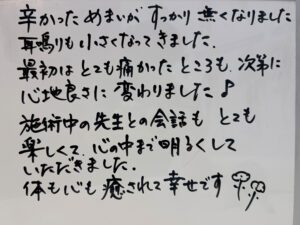 辛かっためまいが すっかり 無くなりました
耳鳴りも小さくなってきました.
最初は とても痛かったところも、次第に
心地良さに 変わりました♪
施術中の先生との会話も とても
楽しくて、心の中まで明るくして
いただきました.
体も心も 癒されて幸せです